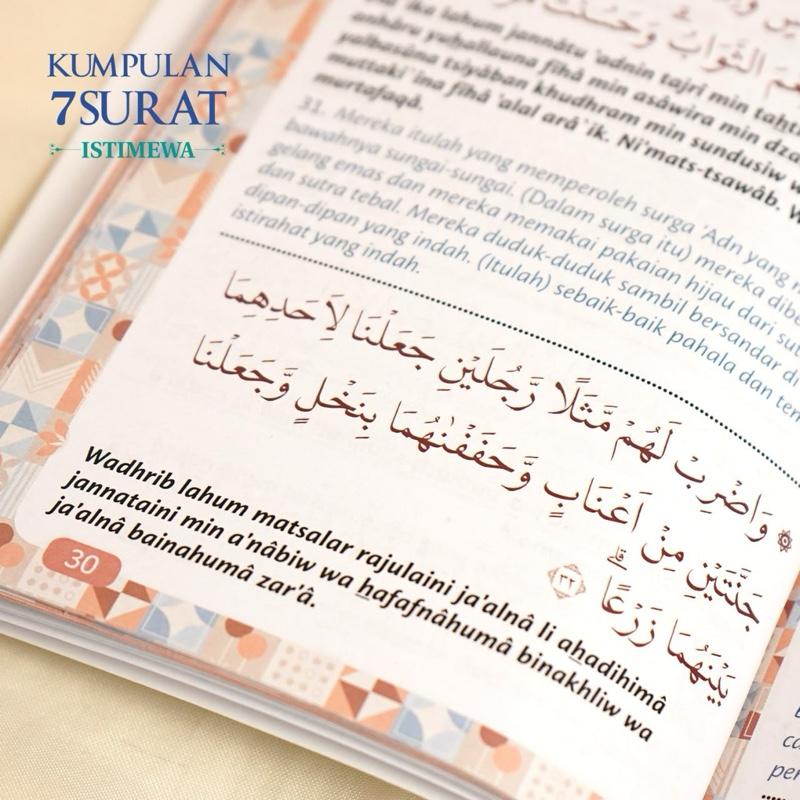 KUMPULAN
7 SURAT
ISTIMEWA
ika lahum jannâtu 'adnin tajrî min taḥt
anhâru yuḥallauna fîhâ min asâwira min dza
yalbasûna tsiyâbon khudhram min sundusiw w
muttaki'ina fîhâ 'alal arâ'ik. Ni'mats-tsawâb. W
murtafaqâ.
31. Mereka itulah yang memperoleh surga 'Adn yang m
bawahnya sungai-sungai. (Dalam surga itu) mereka dibe
gelang emas dan mereka memakai pakaian hijau dari sut
dan sutra tebal. Mereka duduk-duduk sambil bersandar di
dipan-dipan yang indah. (Itulah) sebaik-baik pahala dan tem
istirahat yang indah.
۞ وَاضْرِبْ لَهُمْ مَّثَلًا رَّجُلَيْنِ جَعَلْنَا لِاَحَدِهِمَا
جَنَّتَيْنِ مِنْ اَعْنَابٍ وَّحَفَفْنٰهُمَا بِنَخْلٍ وَّجَعَلْنَا
بَيْنَهُمَا زَرْعًاۗ ٣٢
Wadhrib lahum matsalar rajulaini ja'alnâ li aḥadihimâ
jannataini min a'nâbiw wa ḥafafnâhumâ binakhliw wa
ja'alnâ bainahumâ zar'â.
30